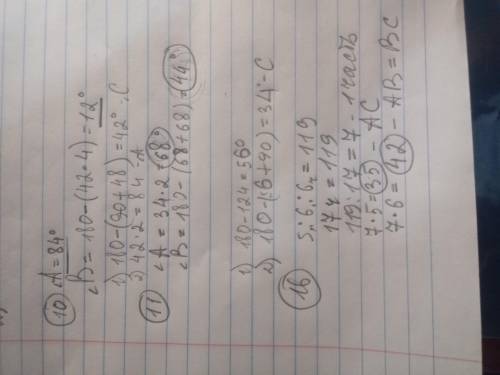 10 ∠A = 84°
∠B = 180-(42+4)=12°
1) 180-(90+48)=42° -C
2) 42·2=84=A
11 ∠A = 34·2=68°
∠B = 180-(68+68)=44°
1) 180-124=56°
2) 180-(56+90)=34°-C
16 5ч:6:6ч=119
17ч=119
119:17=7 - 1 часть
7·5=35 - AC
7·6=42 - AB=BC